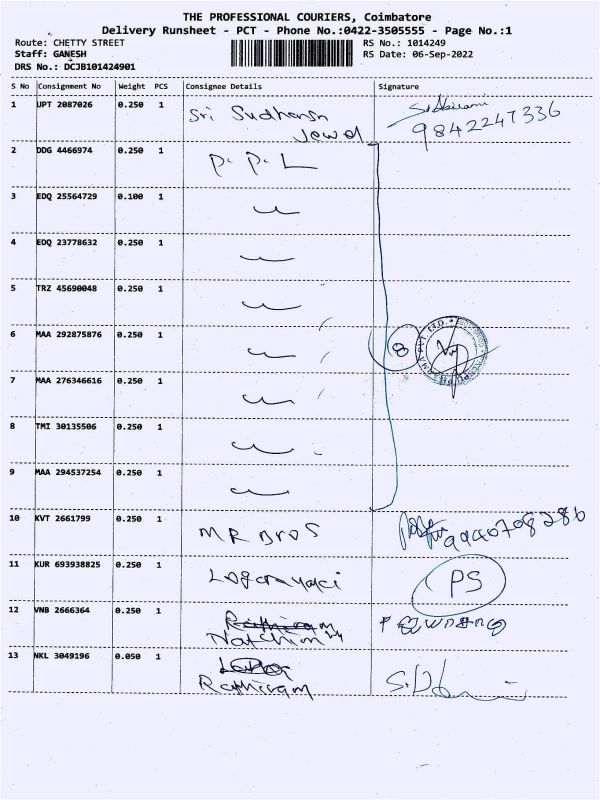 THE PROFESSIONAL COURIERS, Coimbatore
Delivery Runsheet - PCT - Phone No.:0422-3505555 - Page No.:1
Route: CHETTY STREET
Staff: GANESH
DRS No.: DCJB101424901
RS No.: 1014249
RS Date: 06-Sep-2022
S No Consignment No Weight PCS Consignee Details Signature
1 UPT 2087026 0.250 1 Sri Sudharsn
Jewel
9842247336
2 DDG 4466974 0.250 1 P. P. L
3 EDQ 25564729 0.100 1
4 EDQ 23778632 0.250 1
5 TRZ 45690048 0.250 1
6 MAA 292875876 0.250 1 8
7 MAA 276346616 0.250 1
8 TMI 30135506 0.250 1
9 MAA 294537254 0.250 1
10 KVT 2661799 0.250 1 MR Bros
11 KUR 693938825 0.250 1 PS
12 VNB 2666364 0.250 1
13 NKL 3049196 0.050 1 Rathiram